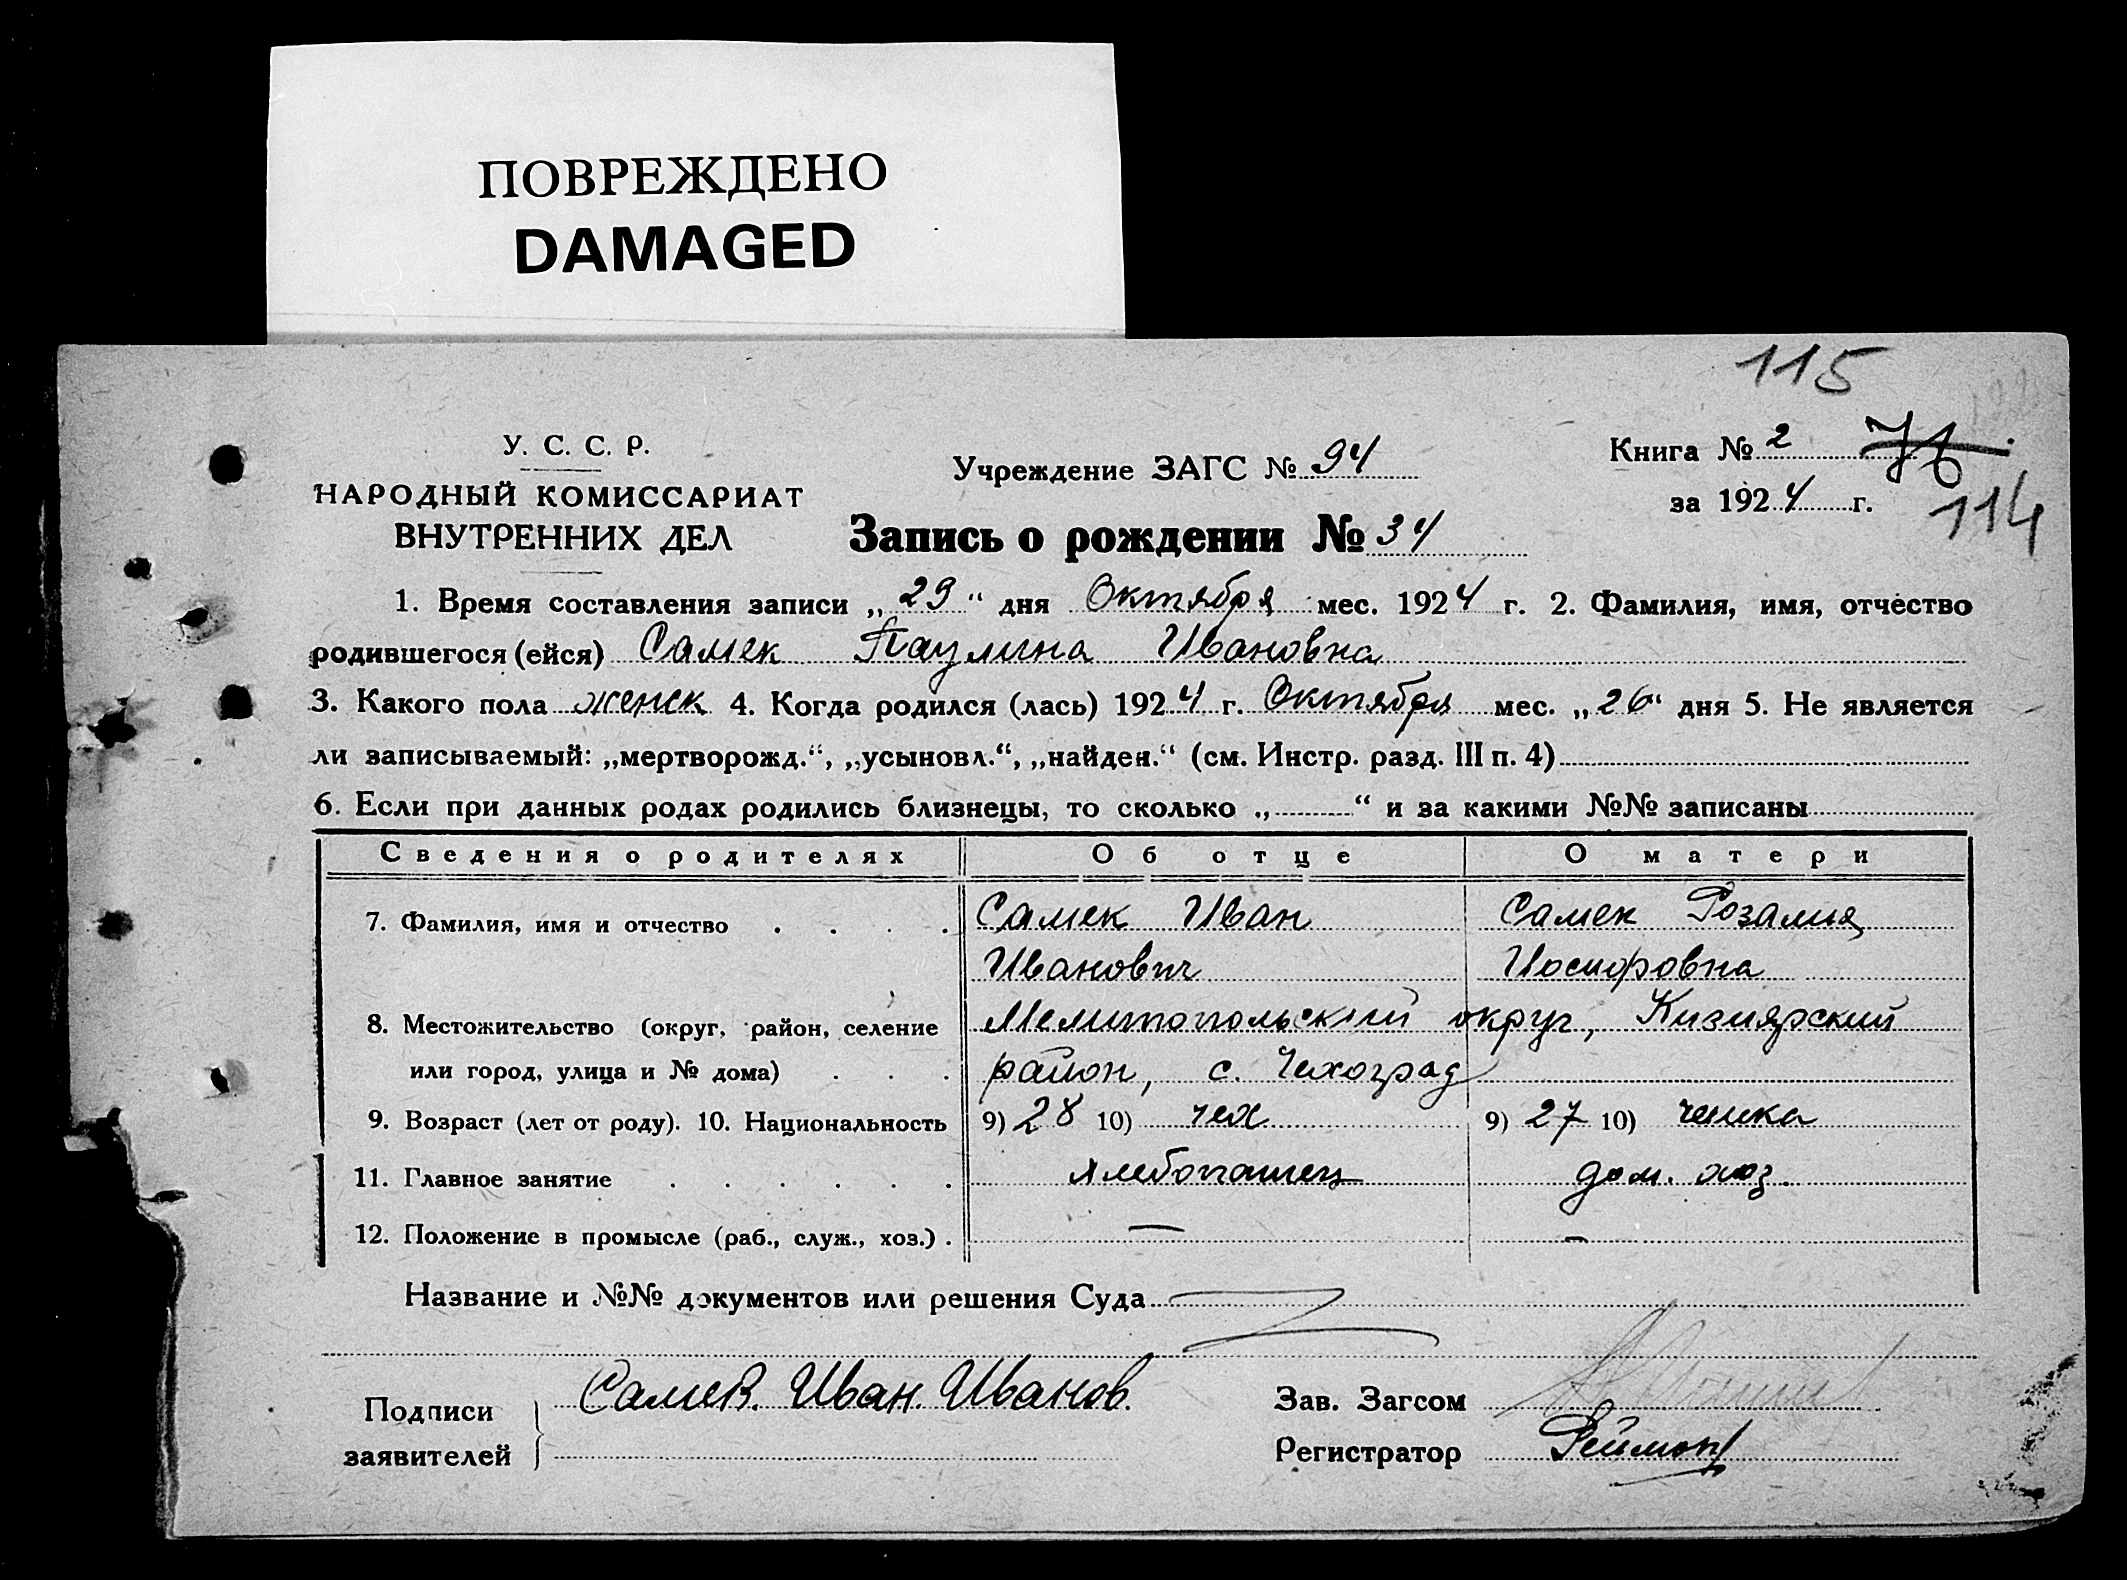 ПОВРЕЖДЕНО
DAMAGED
115
У. С. С. Р.
НАРОДНЫЙ КОМИССАРИАТ
ВНУТРЕННИХ ДЕЛ
Учреждение ЗАГС № 94
Книга № 2
за 1924 г.
114
Запись о рождении № 34
1. Время составления записи „29“ дня Октября мес. 1924 г. 2. Фамилия, имя, отчество
родившегося (ейся) Самек Паулина Ивановна
3. Какого пола женск 4. Когда родился (лась) 1924 г. Октября мес. „26“ дня 5. Не является
ли записываемый: „мертворожд.“, „усыновл.“, „найден.“ (см. Инстр. разд. III п. 4)
6. Если при данных родах родились близнецы, то сколько „ “ и за какими №№ записаны
Сведения о родителях Об отце О матери
7. Фамилия, имя и отчество . . . . Самек Иван Самек Розалия
Иванович Иосифовна
8. Местожительство (округ, район, селение Мелитопольский округ, Кизиярский
или город, улица и № дома) . . . район, с. Чехоград
9. Возраст (лет от роду). 10. Национальность 9) 28 10) чех 9) 27 10) чешка
11. Главное занятие . . . . . . хлебопашец дом. хоз.
12. Положение в промысле (раб., служ., хоз.) . — —
Название и №№ документов или решения Суда
Подписи Самек. Иван. Иванов. Зав. Загсом
заявителей Регистратор